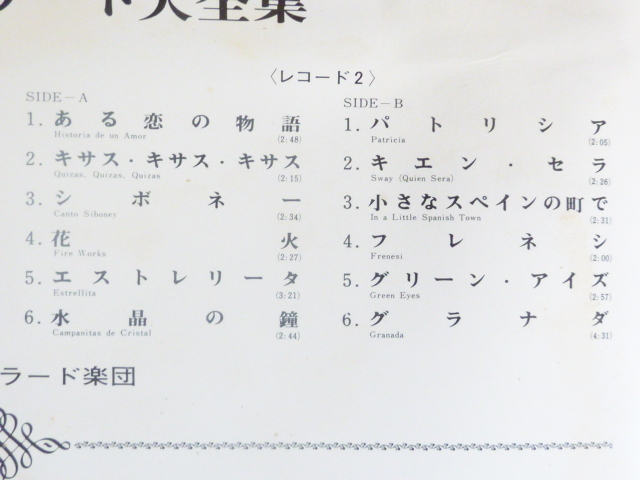 ード大全集
〈レコード2〉
SIDE－A
1. ある恋の物語
Historia de un Amor (2:48)
2. キサス・キサス・キサス
Quizas, Quizas, Quizas (2:15)
3. シボネー
Canto Siboney (2:34)
4. 花火
Fire Works (2:27)
5. エストレリータ
Estrellita (3:21)
6. 水晶の鐘
Campanitas de Cristal (2:44)
SIDE－B
1. パトリシア
Patricia (2:05)
2. キエン・セラ
Sway (Quien Sera) (2:26)
3. 小さなスペインの町で
In a Little Spanish Town (2:31)
4. フレネシ
Frenesi (2:00)
5. グリーン・アイズ
Green Eyes (2:57)
6. グラナダ
Granada (4:31)
ラード楽団